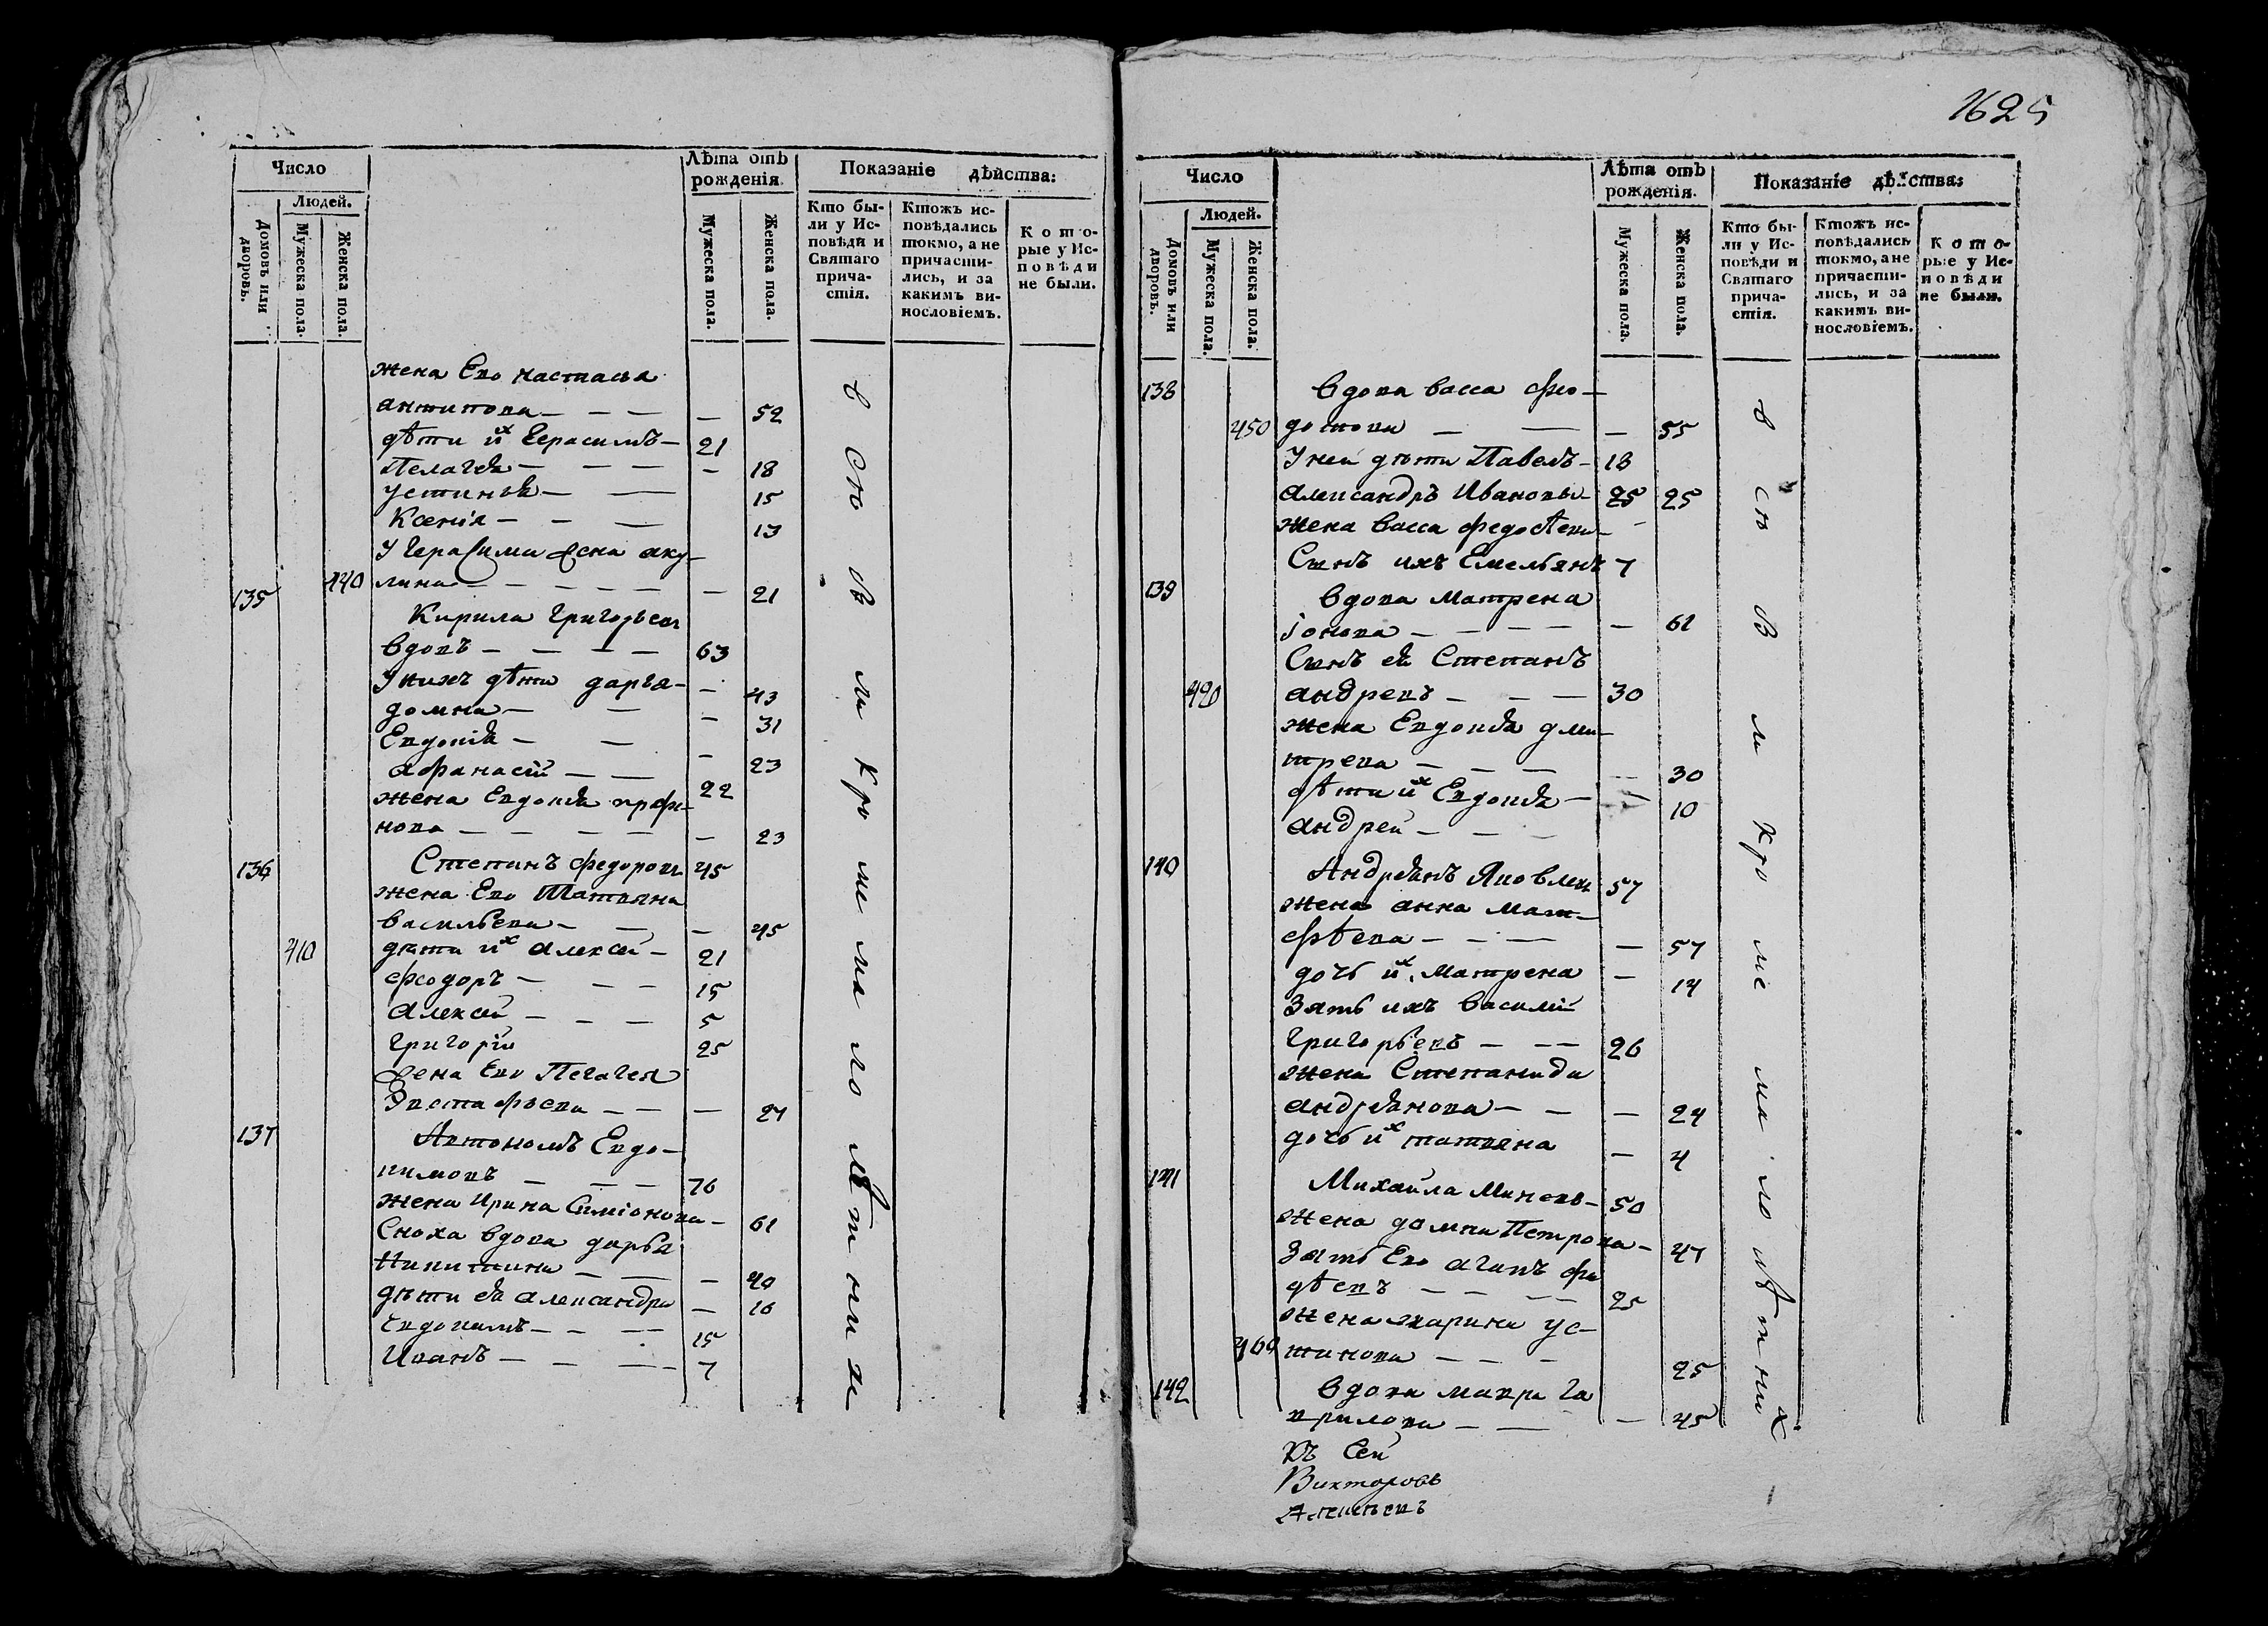 1625
Число
Лѣта отъ рожденія.
Показаніе дѣйства:
Людей.
Домовъ или дворовъ.
Мужеска пола.
Женска пола.
Мужеска пола.
Женска пола.
Кто были у Исповѣди и Святаго причастія.
Ктожъ исповѣдались токмо, а не причастились, и за какимъ винословіемъ.
Которые у Исповѣди не были.
жена Ево настасья
антипова — — — — 52
дѣти их Герасимъ — 21
Пелагея — — — — 18
устинья — — 15
Ксенія — — — 13
У Герасима жена аку-
135 440 лина — — — — — 21
Кирила Григорьевъ
вдовъ — — — — 63
У нихъ дѣти дарья — — 43
домна — — — 31
Евдокія — — — 23
афанасій — — 22
жена Евдокія
нова — — — — — 23
136 Степанъ федоровъ 45
жена Ево Татьяна
васильева — — — 45
410 дѣти их алексѣй — 21
феодоръ — — — 15
алексѣй — — — 5
григорій 25
жена Ево Пелагея
Эвстафьева — — — 27
137 Автономъ Евдо-
кимовъ — — — 76
жена Ирина Симіонова — 61
Сноха вдова дарья
Никитина — — — 40
дѣти ея александра — 16
Евдокимъ — — — 15
Иванъ — — — 7
всѣ в ли кро ме ма ло лѣт ни х
Число
Лѣта отъ рожденія.
Показаніе дѣйства:
Людей.
Домовъ или дворовъ.
Мужеска пола.
Женска пола.
Мужеска пола.
Женска пола.
Кто были у Исповѣди и Святаго причастія.
Ктожъ исповѣдались токмо, а не причастились, и за какимъ винословіемъ.
Которые у Исповѣди не были.
138 вдова васса фео-
450 дотова — — — 55
У ней дѣти Павелъ — 18
александръ Ивановъ 25 25
жена васса федосѣева —
Сынъ ихъ Емельянъ 7
139 вдова Матрена
іонова — — — — — 61
Сынъ ея Степанъ
420 андреевъ — — — 30
жена Евдокія дми-
трева — — — — 30
дѣти их Евдокія — — 10
андрей — — —
140 Андреянъ Яковлевъ 57
жена анна мат-
фѣева — — — — 57
дочь их матрена — 14
Зять ихъ василій
григорьевъ — — 26
жена Степанида
андреянова — — — 24
дочь их татьяна — 4
141 Михайла Минеевъ — 50
жена домна Петрова — 47
Зять Ево агапъ фа
дѣевъ — — — 25
жена марина ус-
460 тинова — — — 25
142 вдова мавра га
врилова — — — 45
Къ Сей
Викторовъ